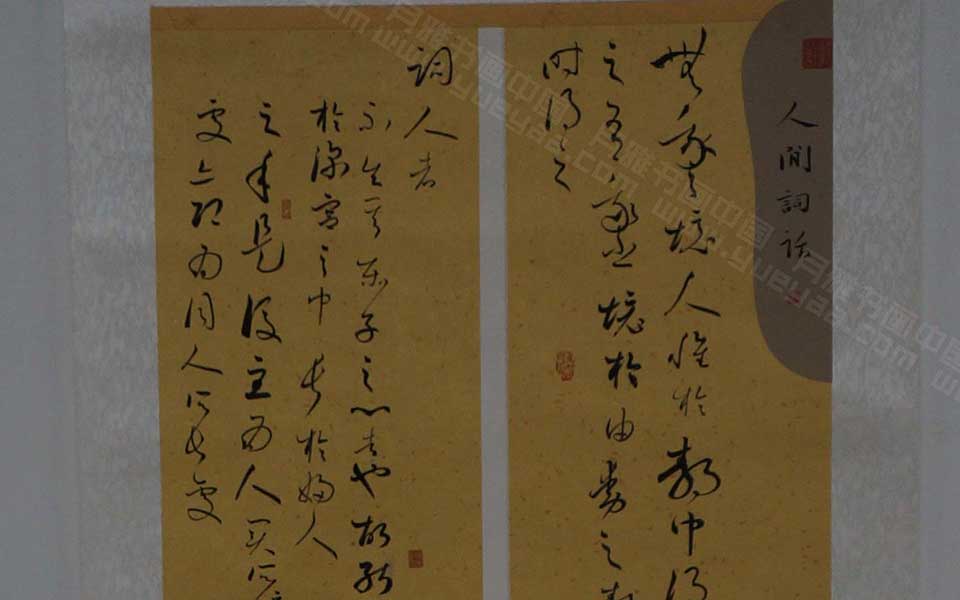 人間詞話
無我之境人惟於靜中得
之有我之境於由動之靜
時得之
詞人者
不失其赤子之心者也故
於深宮之中長於婦人
之手是後主為人君所
處亦即為詞人所長處
月雅书画中国网
www.yueyaa.com